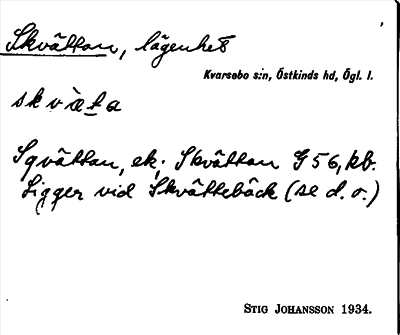 Skvättan, lägenhet
Kvarsebo s:n, Östkinds hd, Ögl. l.
skvæ̀ta
Sqvättan, ek; Skvättan G 56, kb.
Ligger vid Skvättebäck (se d. o.)
STIG JOHANSSON 1934.